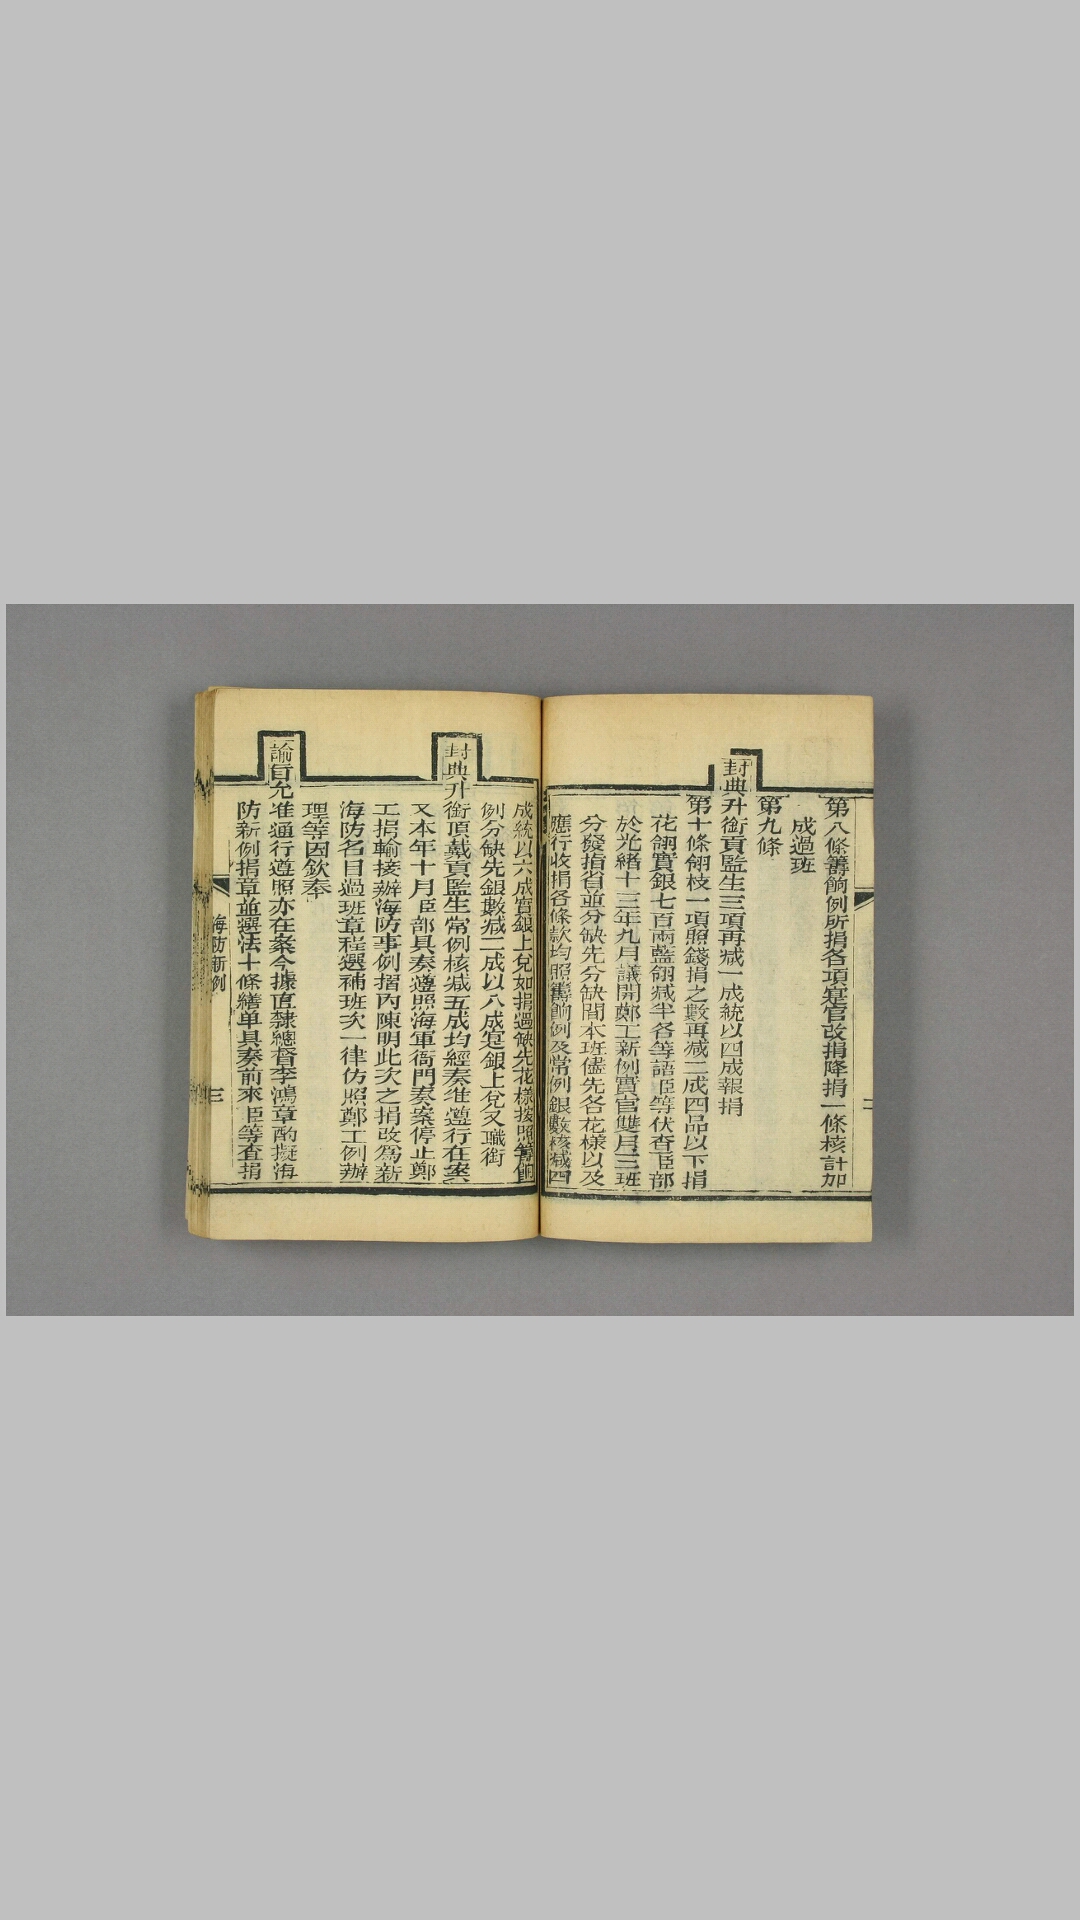 第八條籌餉例所捐各項寔官改捐降捐一條核計加
成過班
第九條
封典升銜貢監生三項再减一成統以四成報捐
第十條翎枝一項照錢捐之數再减二成四品以下捐
花翎實銀七百兩藍翎减半各等語臣等伏查臣部
於光緒十三年九月議開鄭工新例實官雙月三班
分發指省並分缺先分缺間本班儘先各花樣以及
應行收捐各條款均照籌餉例及常例銀數核减四
成統以六成實銀上兌如捐過缺先花樣按照籌餉
例分缺先銀數减二成以八成寔銀上兌又職銜
封典升銜頂戴貢監生常例核减五成均經奏准遵行在案
又本年十月臣部具奏遵照海軍衙門奏案停止鄭
工捐輸接辦海防事例摺內陳明此次之捐改為新
海防名目過班章程選補班次一律仿照鄭工例辦
理等因欽奉
諭旨允准通行遵照亦在案今據直隸總督李鴻章酌擬海
防新例捐章並選法十條繕单具奏前來臣等查捐
海防新例
三